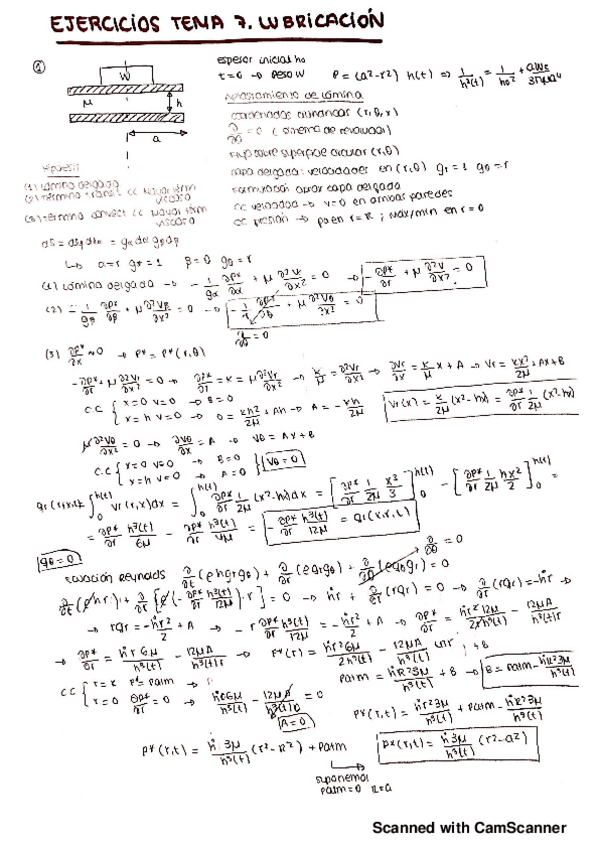 EJERCICIOS TEMA 7. LUBRICACIÓN
① espesor inicial h0
t=0 → peso W P = (a²-r²) h(t) ⇒ 1/h²(t) = 1/h0² +
W
μ h
a
coordenadas cilíndricas (r, θ, x)
∂/∂θ = 0 (sistema de revolución)
Flujo sobre superficie circular (r, θ)
capa delgada: velocidades en (r, θ) gr = 1 gθ = r
Formulación capa delgada
cc velocidad → v=0 en ambas paredes
cc presión → pa en r=R ; max/min en r=0
Hipótesis
(1) Lámina delgada
(2) término
(3) término
→ α=r gα=1 β=θ gθ=r
(1) Lámina delgada → - 1/gα ∂P*/∂α + μ ∂²V/∂x² = 0 → - ∂P*/∂r + μ ∂²Vr/∂x² = 0
(2) - 1/gβ ∂P*/∂β + μ ∂²Vβ/∂x² = 0 → - 1/r ∂P*/∂θ + μ ∂²Vθ/∂x² = 0
∂/∂θ = 0
(3) ∂P*/∂x ≈ 0 → P* = P*(r, θ)
- ∂P*/∂r + μ ∂²Vr/∂x² = 0 → ∂P*/∂r = K = μ ∂²Vr/∂x² → K/μ = ∂²Vr/∂x² → ∂Vr/∂x = K/μ x + A → Vr = Kx²/2μ + Ax + B
C.C { x=0 v=0 → B=0
x=h v=0 → 0 = Kh²/2μ + Ah → A = - Kh/2μ
Vr(x) = K/2μ (x²-hx) = ∂P*/∂r 1/2μ (x²-hx)
μ ∂²Vθ/∂x² = 0 → ∂Vθ/∂x = A → Vθ = Ax + B
C.C { x=0 v=0 → B=0
x=h v=0 → A=0 } Vθ=0
∫0^h(t) Vr(r,x)dx = ∫0^h(t) ∂P*/∂r 1/2μ (x²-hx)dx = [∂P*/∂r 1/2μ x³/3]0^h(t) - [∂P*/∂r 1/2μ hx²/2]0^h(t) =
= ∂P*/∂r h³(t)/6μ - ∂P*/∂r h³(t)/4μ = - ∂P*/∂r h³(t)/12μ
qθ=0
∂/∂θ = 0
Ecuación Reynolds ∂/∂t (ρhgrgθ) + ∂/∂r (ρqrgθ) + ∂/∂θ (ρqθgr) = 0
∂/∂t (ρhr) + ∂/∂r {ρ(- ∂P*/∂r h³(t)/12μ)·r} = 0 → ḣr + ∂/∂r (rqr) = 0 → ∂/∂r (rqr) = -ḣr →
→ rqr = -ḣr²/2 + A → - r ∂P*/∂r h³(t)/12μ = -ḣr²/2 + A → ∂P*/∂r = ḣr² 12μ/2rh³(t) - 12μA/h³(t)r
→ ∂P*/∂r = ḣr6μ/h³(t) - 12μA/h³(t)r → P*(r) = ḣr²6μ/2h³(t) - 12μA/h³(t) lnr + B
CC { r=R P*=Patm →
r=0 ∂P*/∂r = 0 →
Patm = ḣR²3μ/h³(t) + B → B = Patm - ḣR²3μ/h³(t)
A=0
P*(r,t) = ḣr²3μ/h³(t) + Patm - ḣR²3μ/h³(t)
P*(r,t) = ḣ3μ/h³(t) (r²-R²) + Patm
P*(r,t) = ḣ3μ/h³(t) (r²-a²)
suponemos
Patm=0 R=a
Scanned with CamScanner